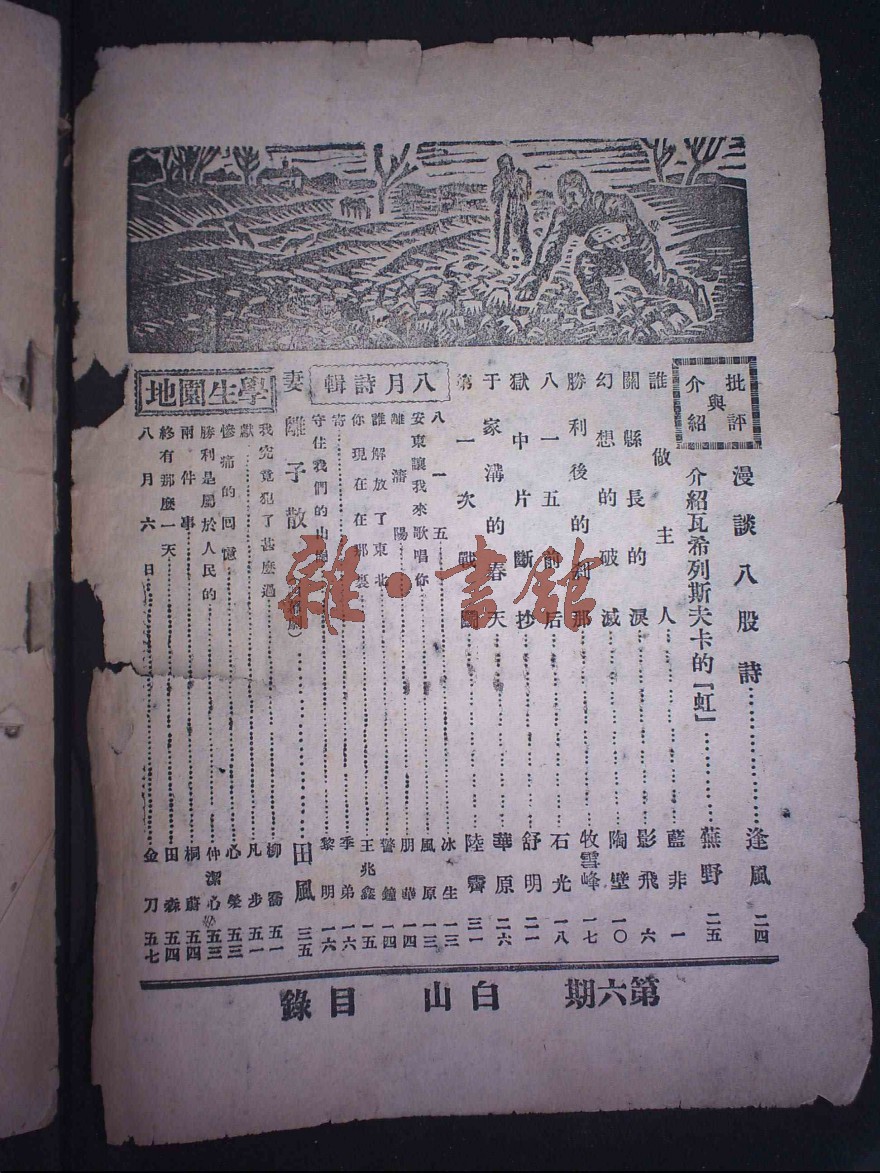 批評與介紹
漫談八股詩………………逢風 二四
介紹瓦希列斯夫卡的『虹』………蕪野 二五
誰做主人………………藍非 一
關縣長的淚………………影飛 六
幻想的破滅………………陶壁 一〇
勝利後的刹那………………牧雲峰 一七
八一五前后………………石光 一八
獄中片斷抄………………舒明 二一
于家溝的春天………………華原 二六
第一次戰鬪………………陸霽 三一
八月詩輯
八一五………………冰生 一三
安東讓我來歌唱你………………風原 一三
離瀋陽………………朋華 一四
誰解放了東北………………警鐘 一四
你現在在那裏………………王兆鑫 一五
寄………………季弟 一六
守住我們的山崗………………黎明 一六
妻離子散………………田風 三五
學生園地
我究竟犯了甚麽過………………柳喬 五一
獻………………凡步 五一
慘痛的回憶………………心榮 五三
勝利是屬於人民的………………仲潔心 五三
兩件事………………桐蔚 五四
終有那麽一天………………田森 五四
八月六日………………金刀 五七
第六期 白山 目錄
雜·書館